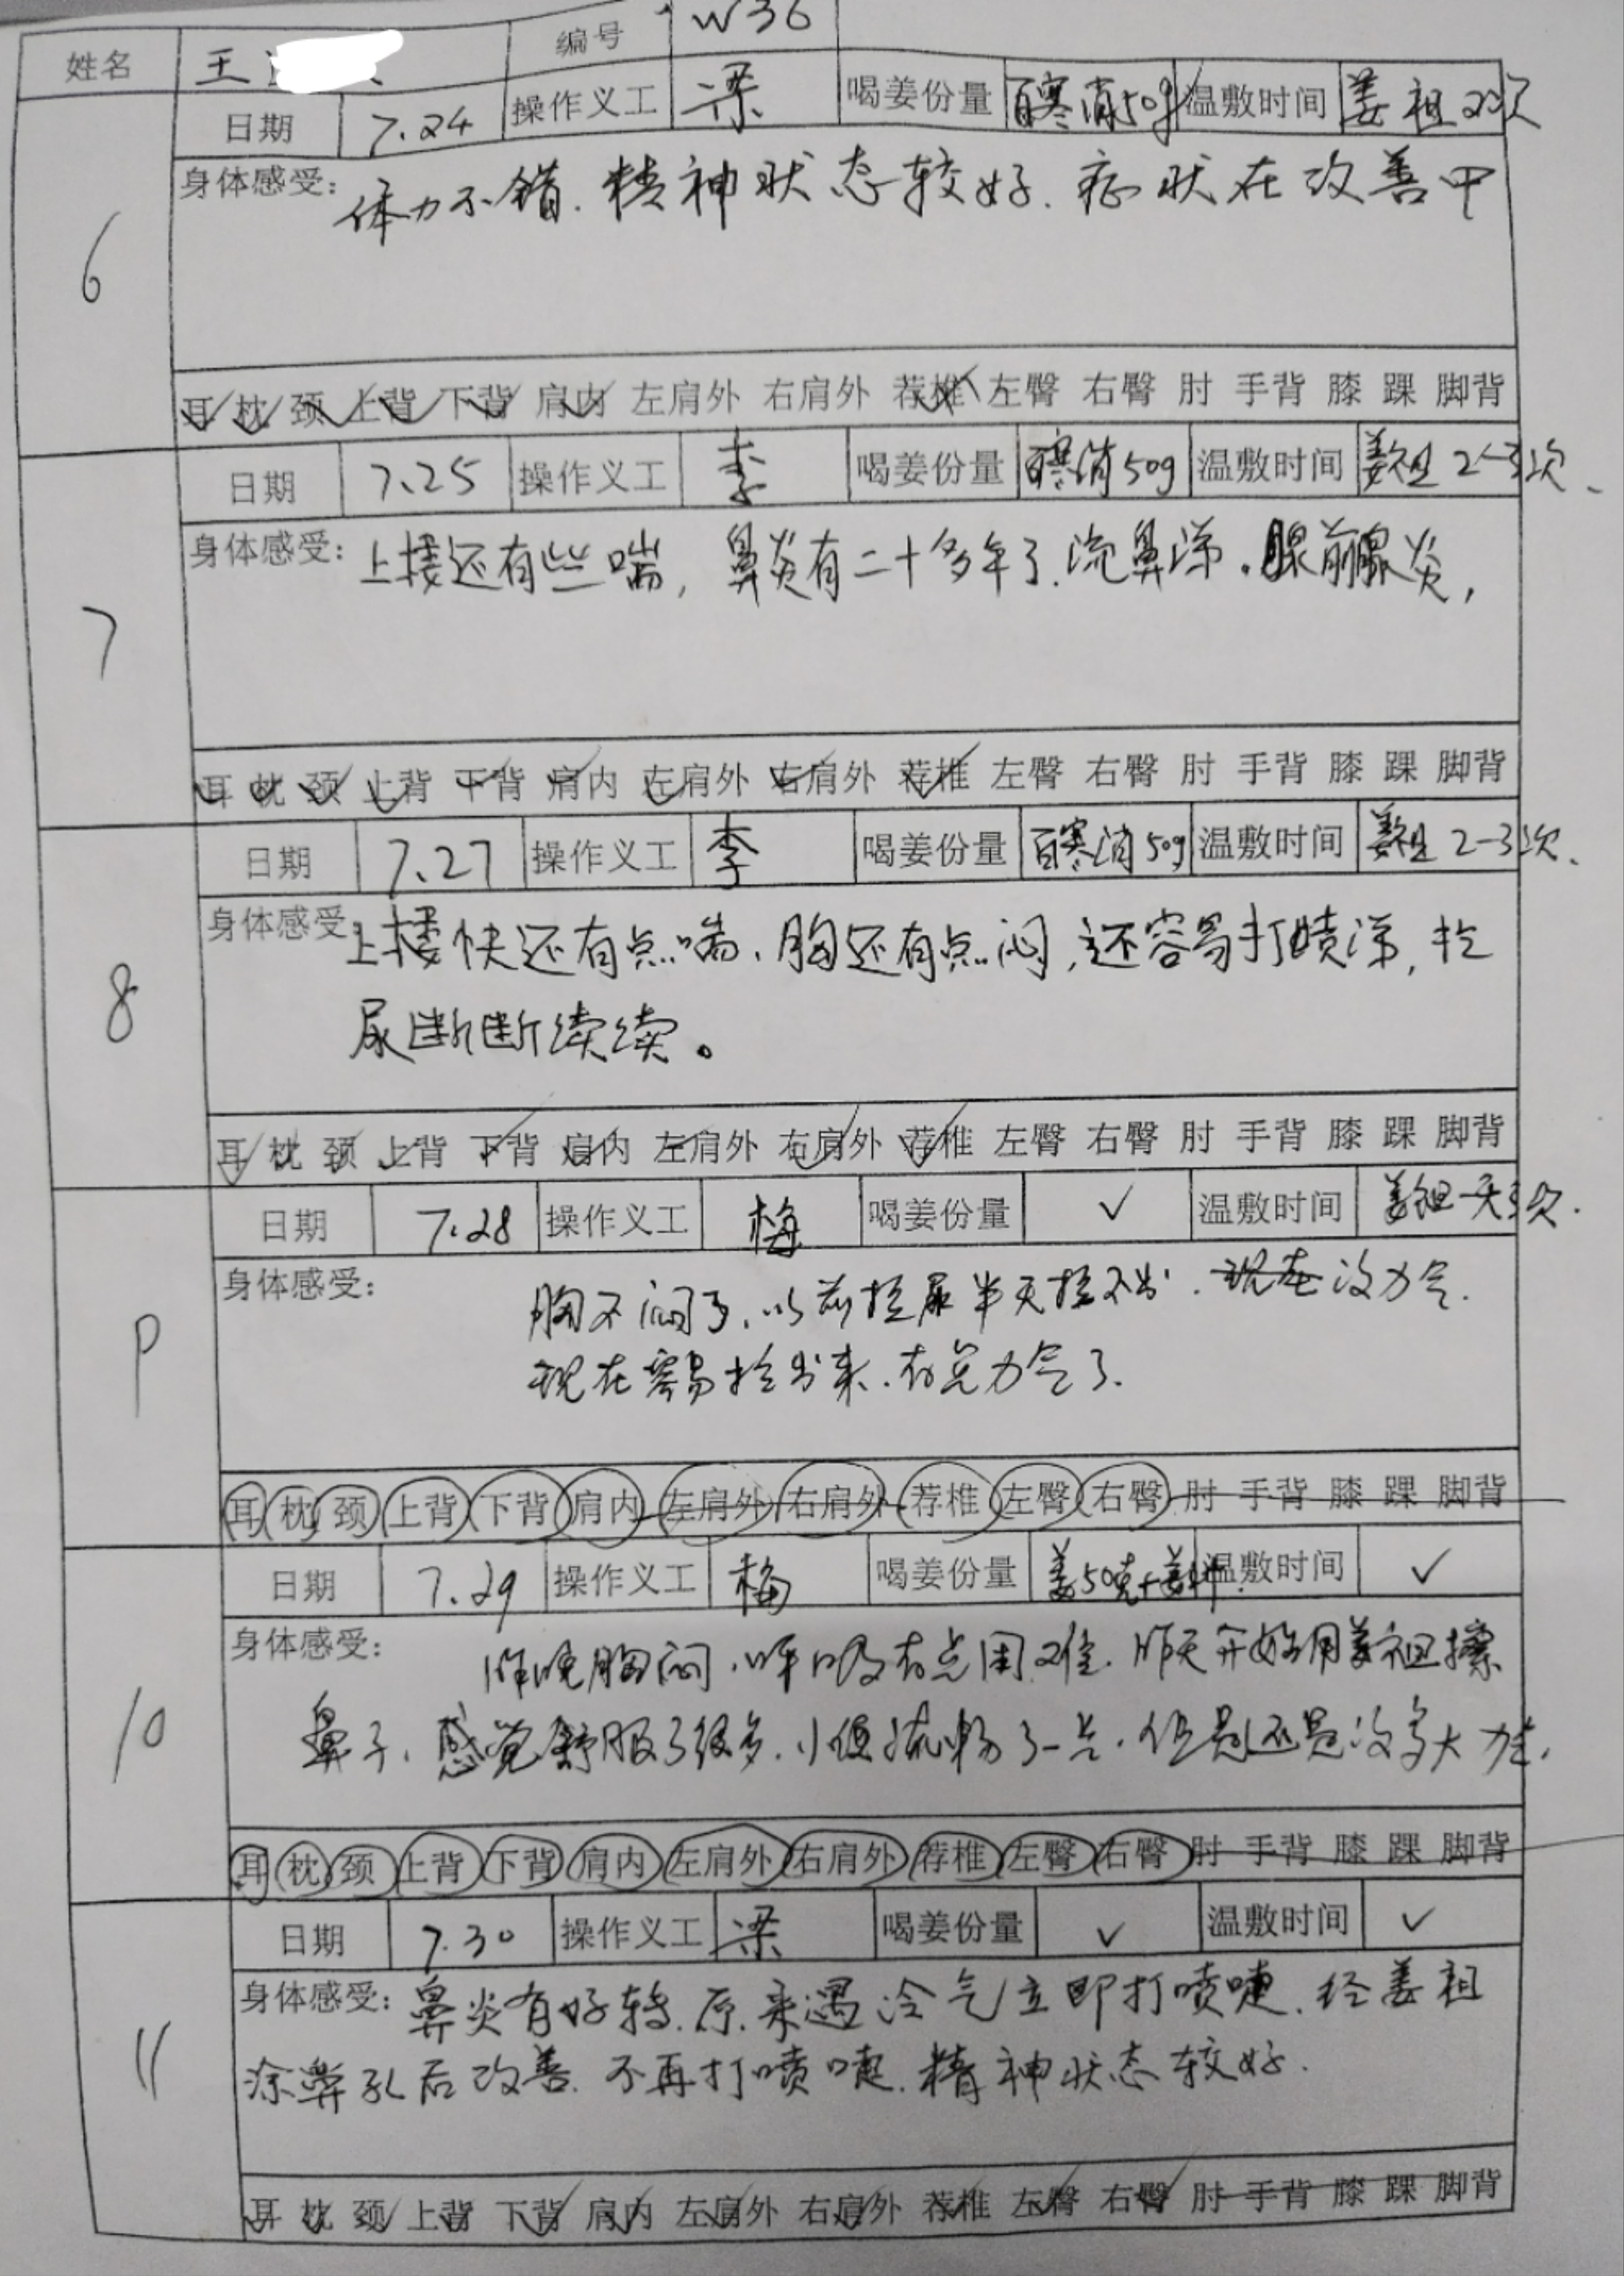 姓名 王 编号 W36
6 日期 7.24 操作义工 梁 喝姜份量 百寒消50g 温敷时间 姜祖2次
身体感受: 体力不错.精神状态较好.症状在改善中
耳 枕 颈 上背 下背 肩内 左肩外 右肩外 荐椎 左臀 右臀 肘 手背 膝 踝 脚背
7 日期 7.25 操作义工 李 喝姜份量 百寒消50g 温敷时间 姜祖2-3次、
身体感受: 上楼还有些喘,鼻炎有二十多年了.流鼻涕.腺前腺炎,
耳 枕 颈 上背 下背 肩内 左肩外 右肩外 荐椎 左臀 右臀 肘 手背 膝 踝 脚背
8 日期 7.27 操作义工 李 喝姜份量 百寒消50g 温敷时间 姜祖2-3次、
身体感受: 上楼快还有点喘、胸还有点闷,还容易打喷涕,拉
尿断断续续。
耳 枕 颈 上背 下背 肩内 左肩外 右肩外 荐椎 左臀 右臀 肘 手背 膝 踝 脚背
9 日期 7.28 操作义工 梅 喝姜份量 ✓ 温敷时间 姜祖一天3次.
身体感受: 胸不闷了.以前拉尿半天拉不出.现在没力气.
现在容易拉出来.有点力气了.
耳 枕 颈 上背 下背 肩内 左肩外 右肩外 荐椎 左臀 右臀 肘 手背 膝 踝 脚背
10 日期 7.29 操作义工 梅 喝姜份量 姜50克+姜 温敷时间 ✓
身体感受: 昨晚胸闷.呼吸有点困难.昨天开始用姜祖擦
鼻子、感觉舒服了很多.小便流畅了一点.但是还是没多大力气.
耳 枕 颈 上背 下背 肩内 左肩外 右肩外 荐椎 左臀 右臀 肘 手背 膝 踝 脚背
11 日期 7.30 操作义工 梁 喝姜份量 ✓ 温敷时间 ✓
身体感受: 鼻炎有好转.原来遇冷气立即打喷嚏.经姜祖
涂鼻孔后改善.不再打喷嚏.精神状态较好.
耳 枕 颈 上背 下背 肩内 左肩外 右肩外 荐椎 左臀 右臀 肘 手背 膝 踝 脚背